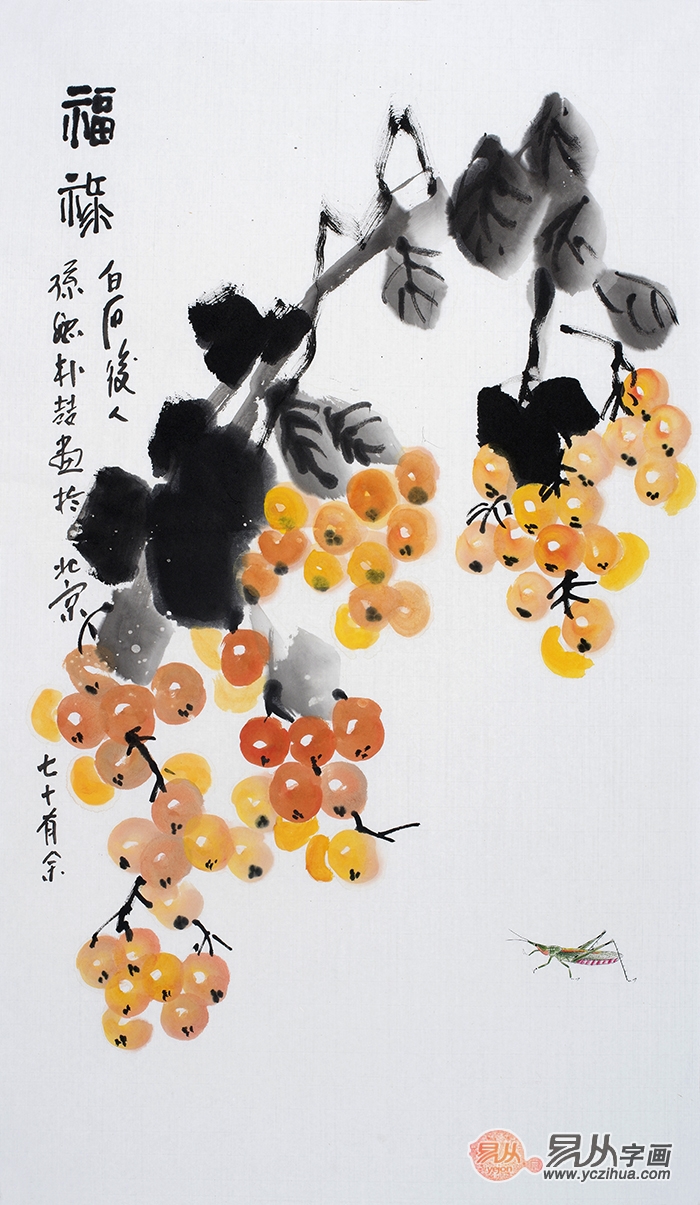 福祿
白石後人
孫媳朴喆畫於北京
七十有余
易从
易从字画
www.yczihua.com